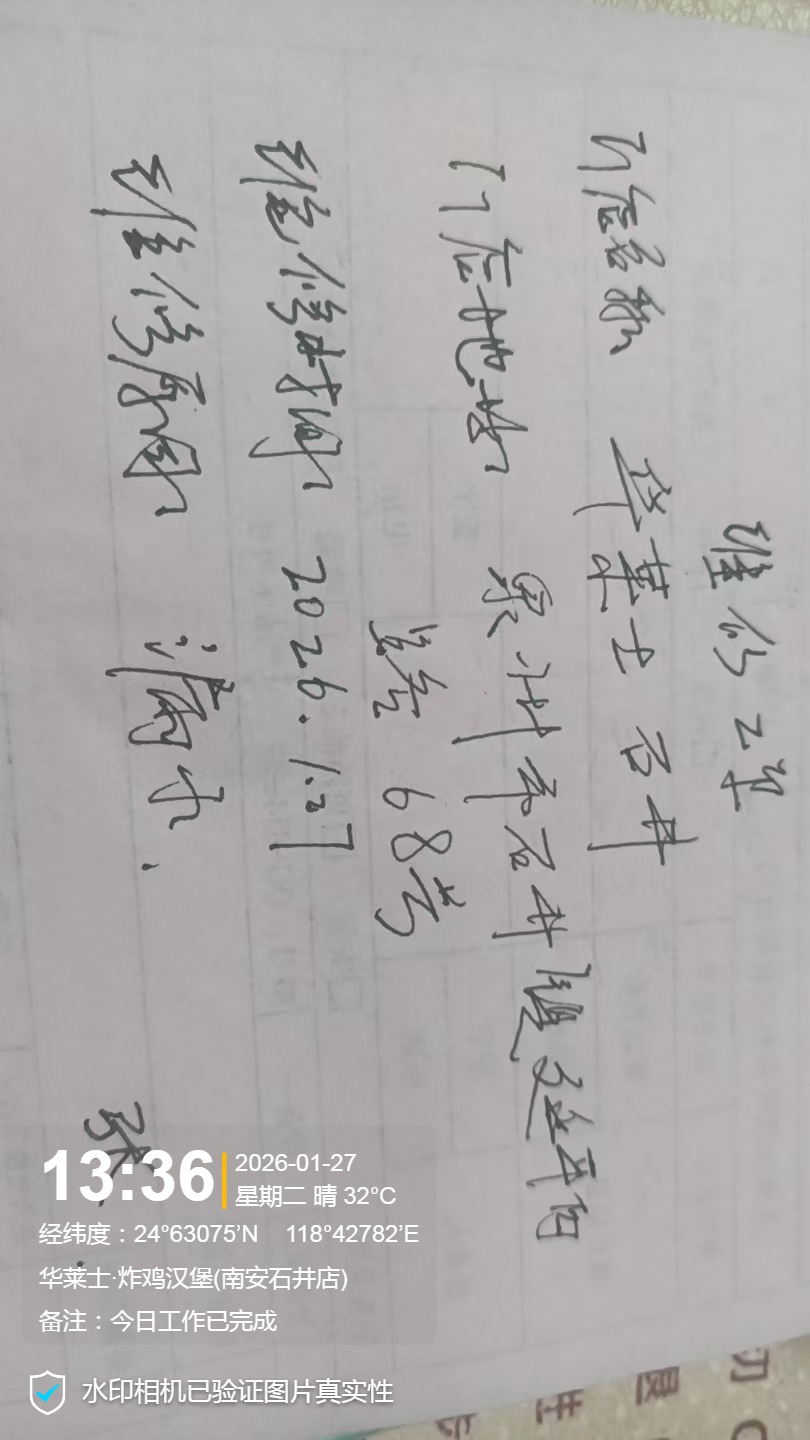 维修工单
门店名称 华莱士 石井
门店地址 泉州市石井镇延平
路 68号
维修时间 2026.1.27
维修原因 漏水.
张
13:36
2026-01-27
星期二 晴 32°C
经纬度：24°63075'N 118°42782'E
华莱士·炸鸡汉堡(南安石井店)
备注：今日工作已完成
水印相机已验证图片真实性